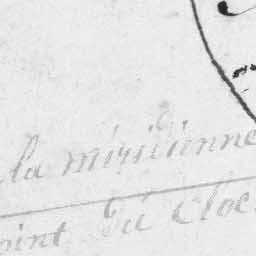 la méridienne
oint du Cloc